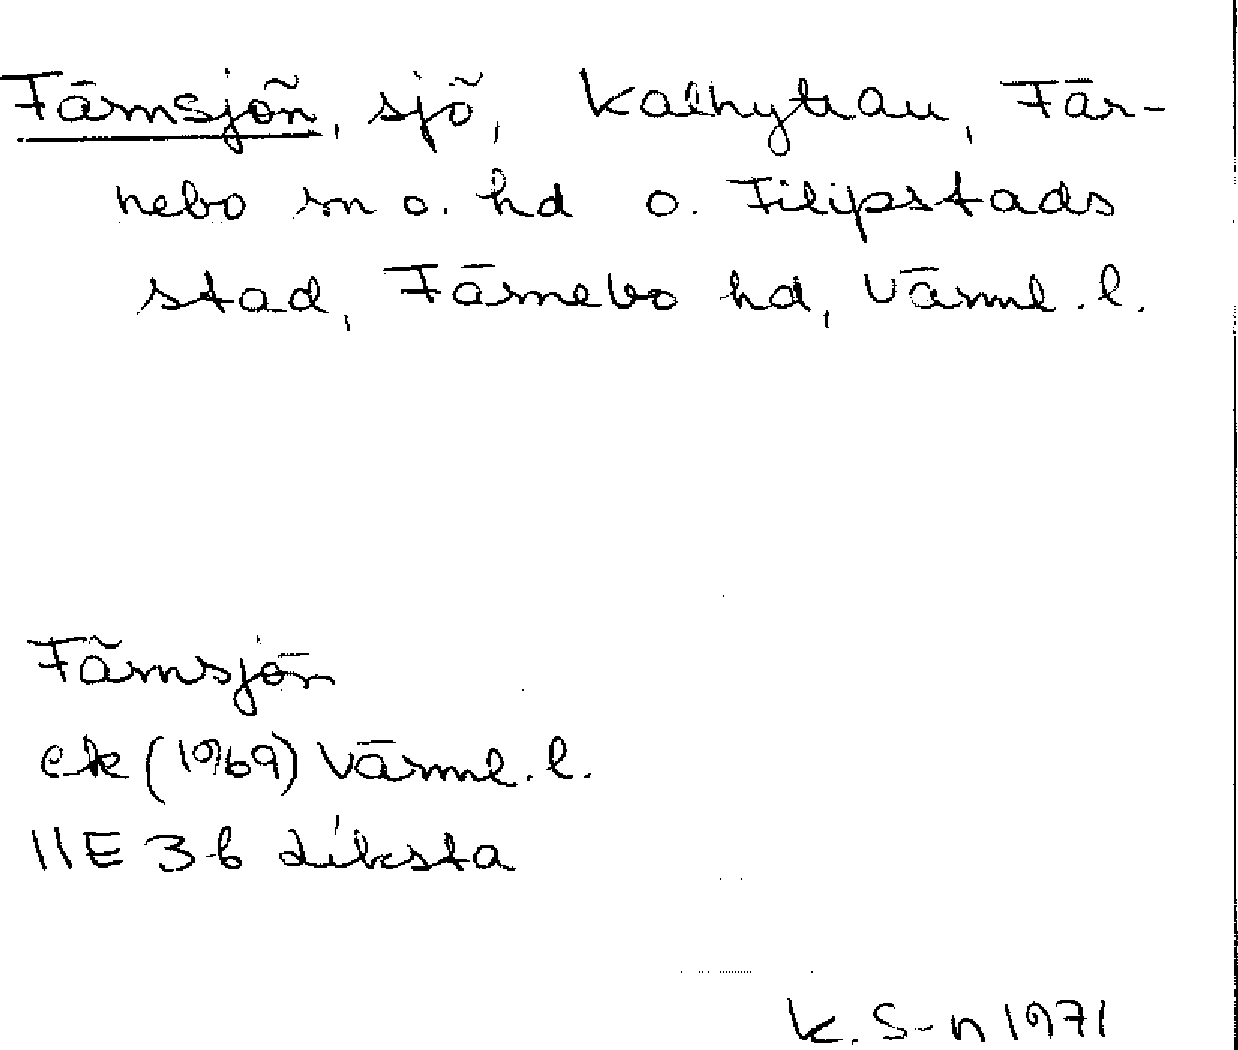 Färnsjön, sjö, Kalhyttan, Fär-
nebo sn o. hd o. Filipstads
stad, Färnebo hd, Värml. l.
Färnsjön
ek (1969) Värml. l.
11E 3 b
K. S-n 1971